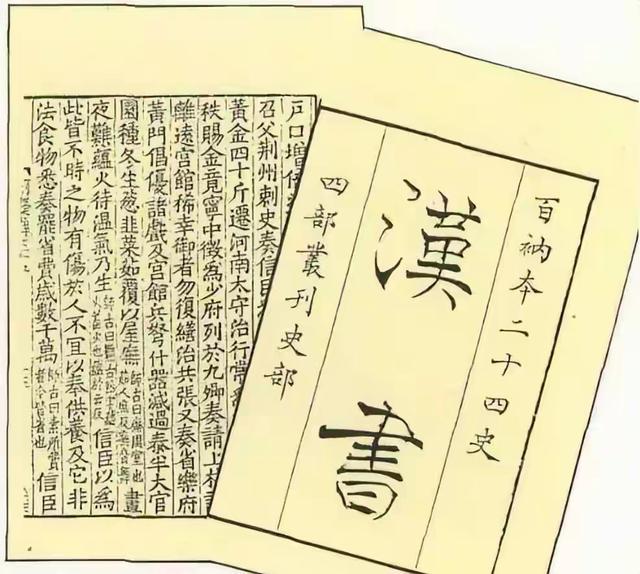 百衲本二十四史
漢書
四部叢刊史部
戶口增倍
召父荆州刺史奏信臣
黃金四十斤遷河南太守治行常
秩賜金竟寧中徵為少府列於九卿奏請上林
離遠宮館稀幸御者勿復繕治共張又奏省樂府
黃門倡優諸戲及宮館兵弩什器減過泰半大官
園種冬生葱韭菜茹覆以屋廡師古曰晝
夜難蘊火待溫氣乃生師古曰信臣以為
此皆不時之物有傷於人不冝以奉供養及它非
法食物悉奏罷省費歲數千萬師古曰素所費者今皆省也信臣